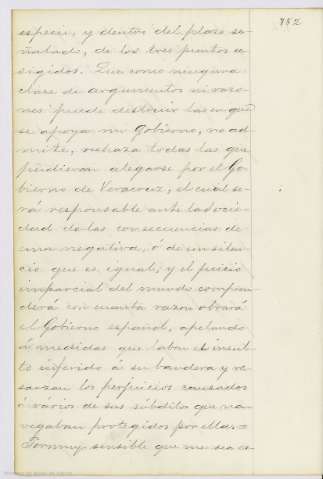 782
especie, y dentro del plazo se-
ñalado, de los tres puntos e-
xigidos. Que como ninguna
clase de argumentos ni razo-
nes puede destruir las en que
se apoya mi Gobierno, no ad-
mite, rechaza todas las que
pudieran alegarse por el Go-
bierno de Veracruz, el cual se-
rá responsable ante la socie-
dad de las consecuencias de
una negativa, ó de un silen-
cio que es igual; y el juicio
imparcial del mundo compren-
derá con cuanta razon obrará
el Gobierno español, apelando
á medidas que laben el insul-
to inferido á su bandera y re-
sarzan los perjuicios causados
á varios de sus súbditos que na-
vegaban protegidos por ella.=
Formuy sensible que me sea es-